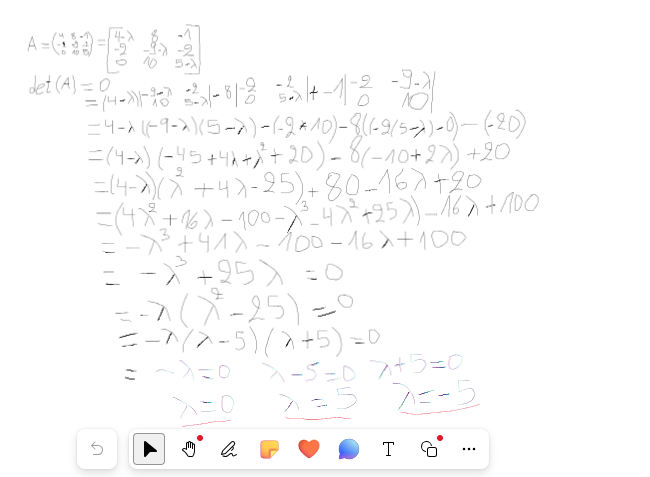 A = (4 8 -1 -2 -9 -2 0 10 5) = [4-λ 8 -1
-2 -9-λ -2
0 10 5-λ]
det(A) = 0
= (4-λ)|-9-λ -2 10 5-λ| -8|-2 -2 0 5-λ| + -1|-2 -9-λ 0 10|
= 4-λ((-9-λ)(5-λ)-(-2*10)-8((-2(5-λ)-0)-(-20)
= (4-λ)(-45+4λ+λ²+20) - 8(-10+2λ) +20
= (4-λ)(λ²+4λ-25)+80-16λ+20
= (4λ²+16λ-100-λ³-4λ²+25λ)-16λ+100
= -λ³+41λ-100-16λ+100
= -λ³+25λ =0
= -λ(λ²-25)=0
= -λ(λ-5)(λ+5)=0
= -λ=0 λ-5=0 λ+5=0
λ=0 λ=5 λ=-5
T